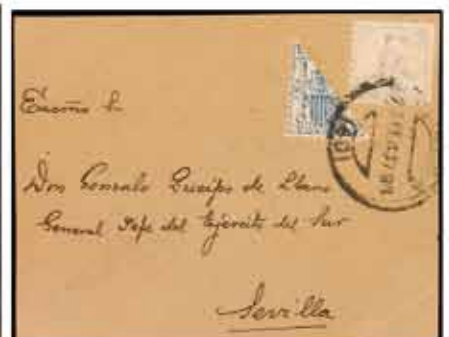 Excmo Sr
Don Gonzalo Queipo de Llano
General Jefe del Ejército del Sur
Sevilla